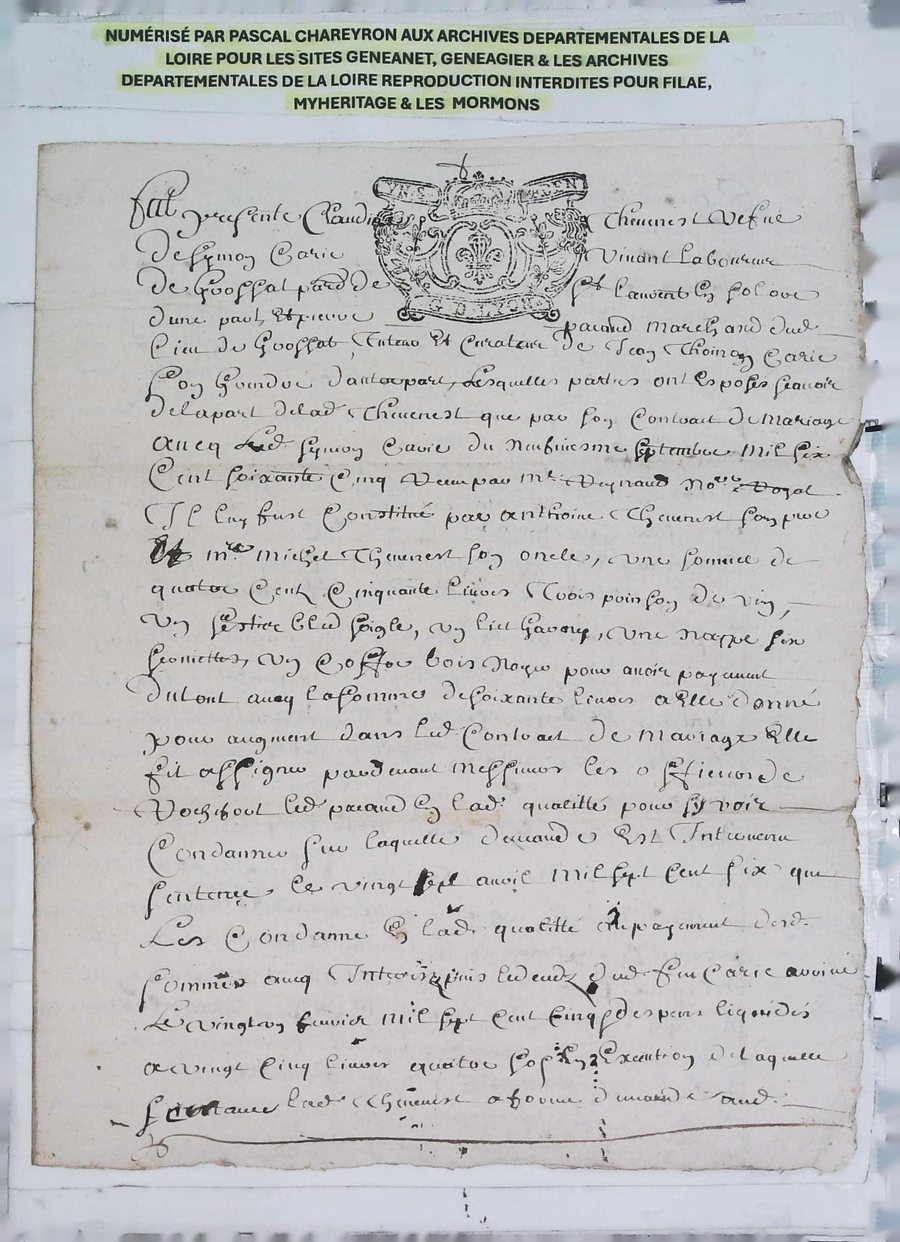 NUMÉRISÉ PAR PASCAL CHAREYRON AUX ARCHIVES DEPARTEMENTALES DE LA
LOIRE POUR LES SITES GENEANET, GENEAGIER & LES ARCHIVES
DEPARTEMENTALES DE LA LOIRE REPRODUCTION INTERDITES POUR FILAE,
MYHERITAGE & LES MORMONS
presente Claudi Thevenest vefue
de Symon Carie vivant laboureur
de par de St laurent Solore
dune part et pierre parand marchand dud
lieu de tuteur et Curateur de Jean Thoinay Carie
Son dautrepart, Lesquelles parties ont exposés scavoir
delapart delad. Thevenest que par son Contract de Mariage
avecq led. Symon Carie du Neufviesme Septembre Mil six
Cent soixante Cinq Receu par Mr. Reynaud Nore Royal
Il luy fust Constitué par anthoine Thevenest son pere
Et mre Michel Thevenest son oncle, une somme de
quatre Cent Cinquante livres Trois poinson de vin,
un sestier bled soigle, un lict garny, une nappe six
serviettes, un Coffre bois Noyer pour avoir payement
dutout avecq lasomme desoixante livres a Elle donné
pour augment dans led. Contract de Mariage Elle
fit assigner pardevant Messieurs les officiers de
Rochefort led. parand En lad. qualitté pour sy voir
Condanner sur laquelle demande Est Intervenu
sentence le vingt sept avril Mil sept Cent six que
Les Condanne En lad. qualitté au payement desd.
sommes avecq Interest puis led dud. feu Carie arrivé
Le vingt un fevrier Mil sept Cent Cinq despens liquidés
a vingt Cinq livres quatre sols En Execution de laquelle
sentence lad. Thevenest a formé demande aud.